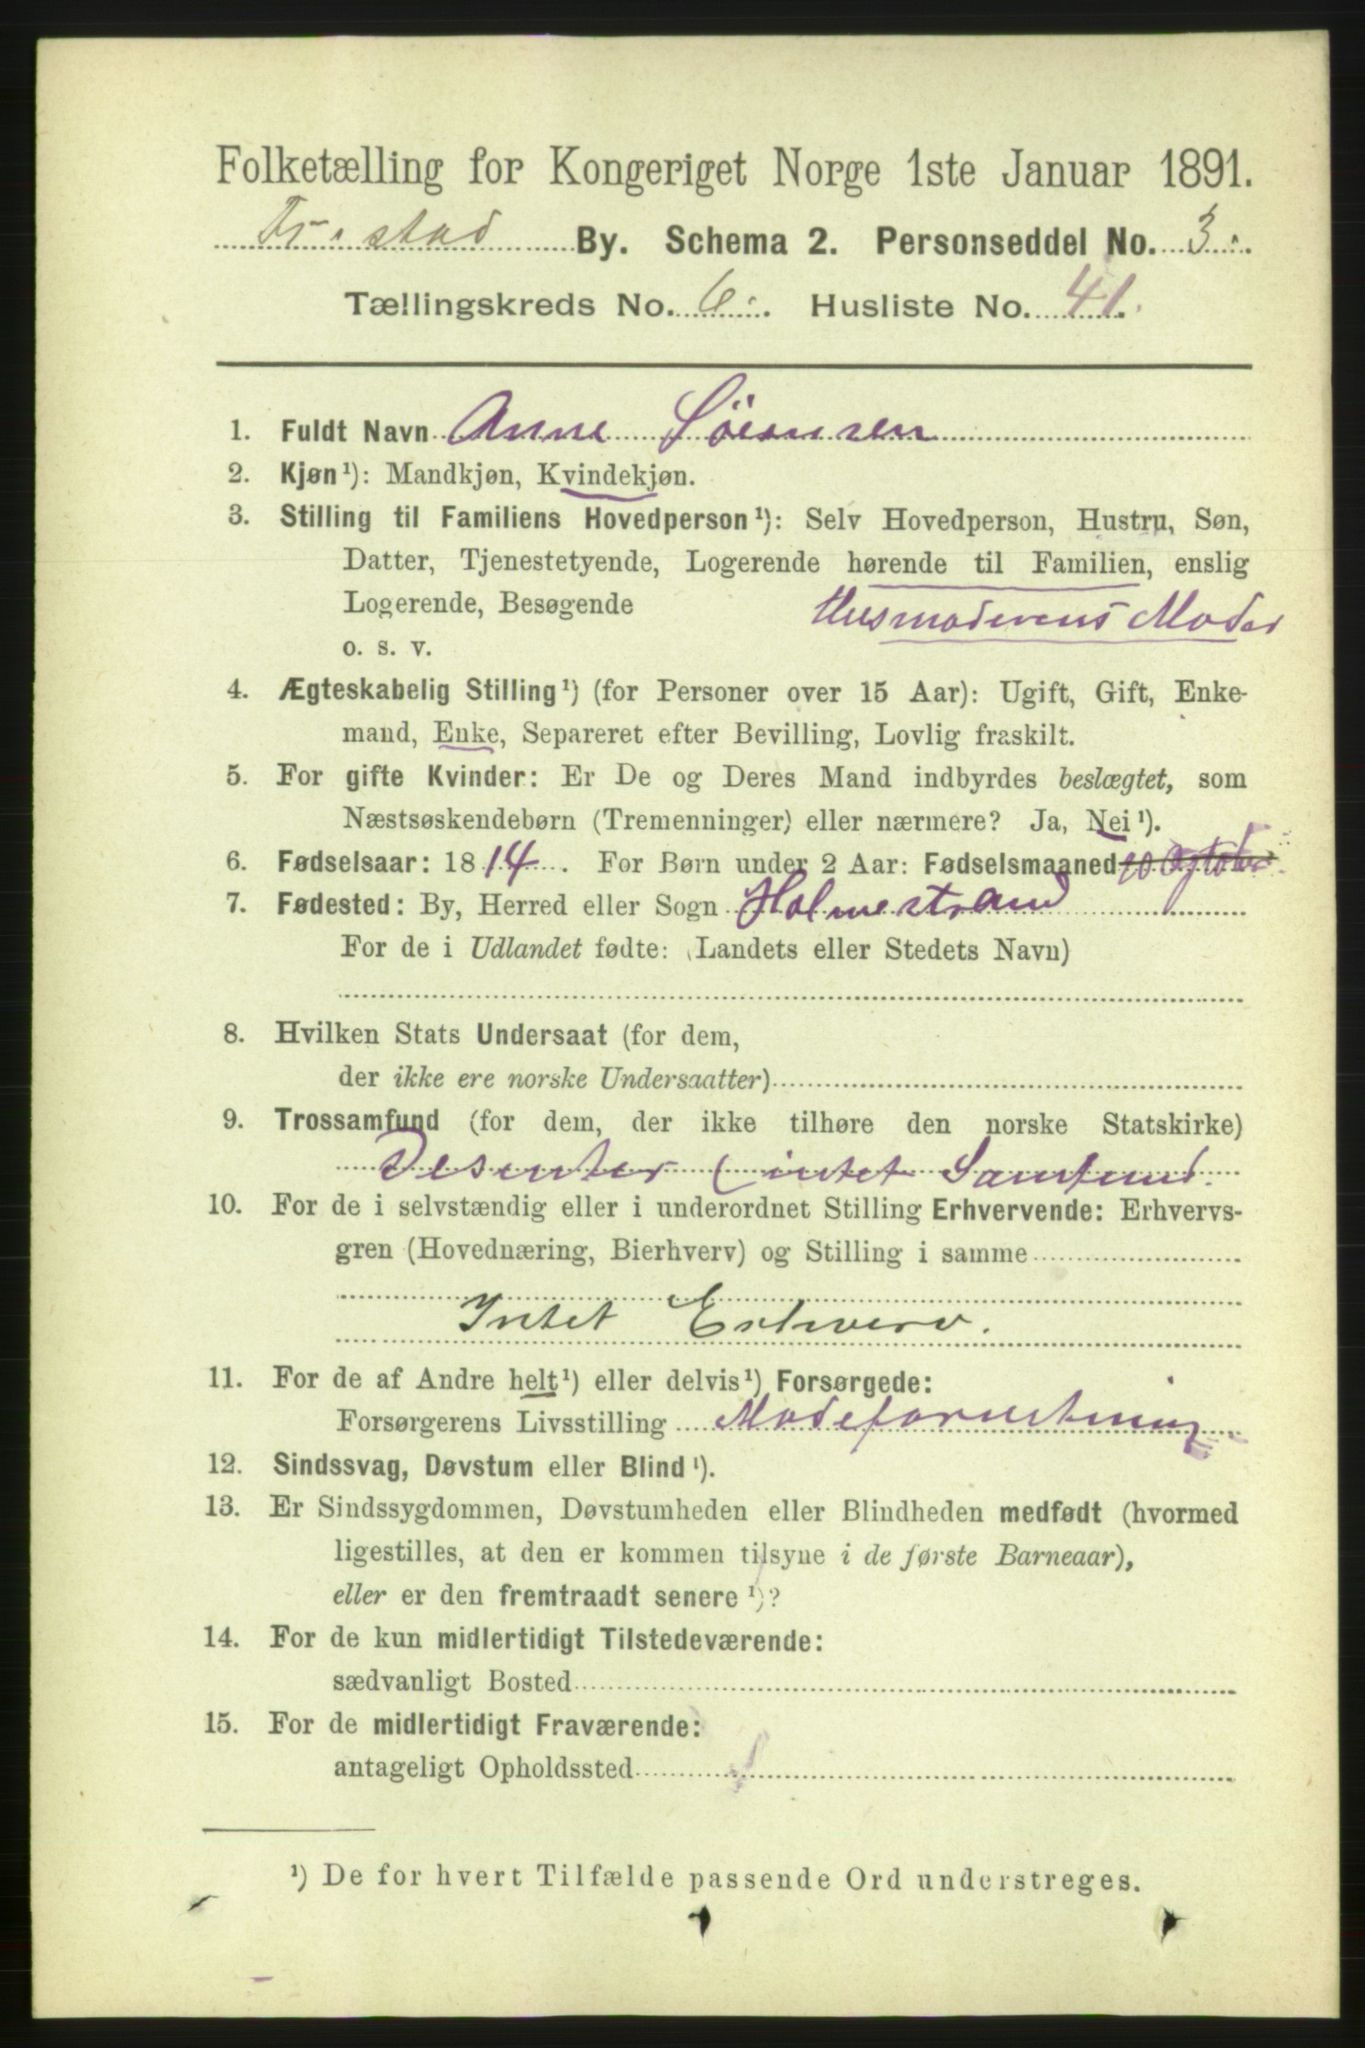 Folketælling for Kongeriget Norge 1ste Januar 1891.
Fr.stad By. Schema 2. Personseddel No. 3.
Tællingskreds No. 6. Husliste No. 41.
1. Fuldt Navn Anne Sørensen
2. Kjøn¹): Mandkjøn, Kvindekjøn.
3. Stilling til Familiens Hovedperson¹): Selv Hovedperson, Hustru, Søn,
Datter, Tjenestetyende, Logerende hørende til Familien, enslig
Logerende, Besøgende Husmoderens Moder
o. s. v.
4. Ægteskabelig Stilling¹) (for Personer over 15 Aar): Ugift, Gift, Enke-
mand, Enke, Separeret efter Bevilling, Lovlig fraskilt.
5. For gifte Kvinder: Er De og Deres Mand indbyrdes beslægtet, som
Næstsøskendebørn (Tremenninger) eller nærmere? Ja, Nei¹).
6. Fødselsaar: 1814. For Børn under 2 Aar: Fødselsmaaned
7. Fødested: By, Herred eller Sogn Holmestrand
For de i Udlandet fødte: (Landets eller Stedets Navn)
8. Hvilken Stats Undersaat (for dem,
der ikke ere norske Undersaatter)
9. Trossamfund (for dem, der ikke tilhøre den norske Statskirke)
Desenter (intet Samfund.
10. For de i selvstændig eller i underordnet Stilling Erhvervende: Erhvervs-
gren (Hovednæring, Bierhverv) og Stilling i samme
Intet Erhverv.
11. For de af Andre helt¹) eller delvis¹) Forsørgede:
Forsørgerens Livsstilling Modeforretning
12. Sindssvag, Døvstum eller Blind¹).
13. Er Sindssygdommen, Døvstumheden eller Blindheden medfødt (hvormed
ligestilles, at den er kommen tilsyne i de første Barneaar),
eller er den fremtraadt senere¹)?
14. For de kun midlertidigt Tilstedeværende:
sædvanligt Bosted
15. For de midlertidigt Fraværende:
antageligt Opholdssted
¹) De for hvert Tilfælde passende Ord understreges.